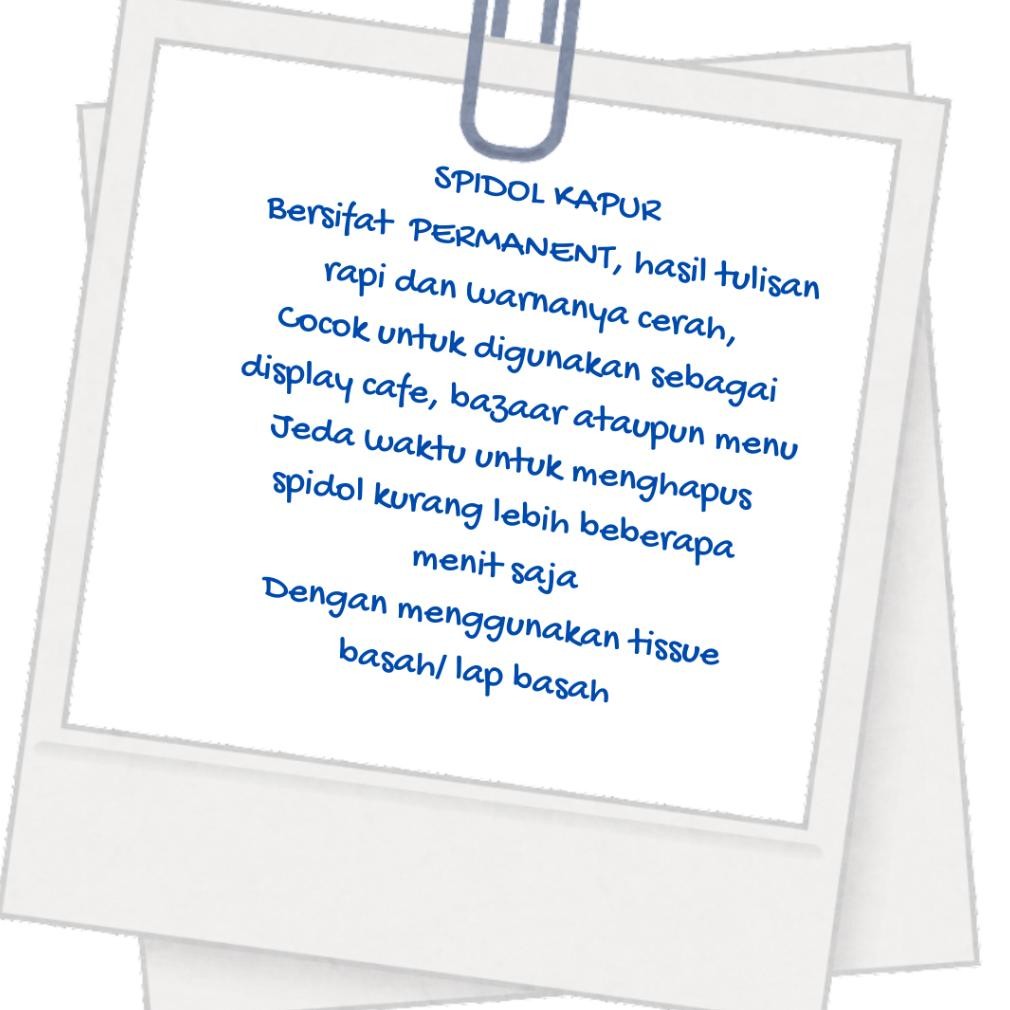 SPIDOL KAPUR
Bersifat PERMANENT, hasil tulisan
rapi dan warnanya cerah,
Cocok untuk digunakan sebagai
display cafe, bazaar ataupun menu
Jeda waktu untuk menghapus
spidol kurang lebih beberapa
menit saja
Dengan menggunakan tissue
basah/ lap basah